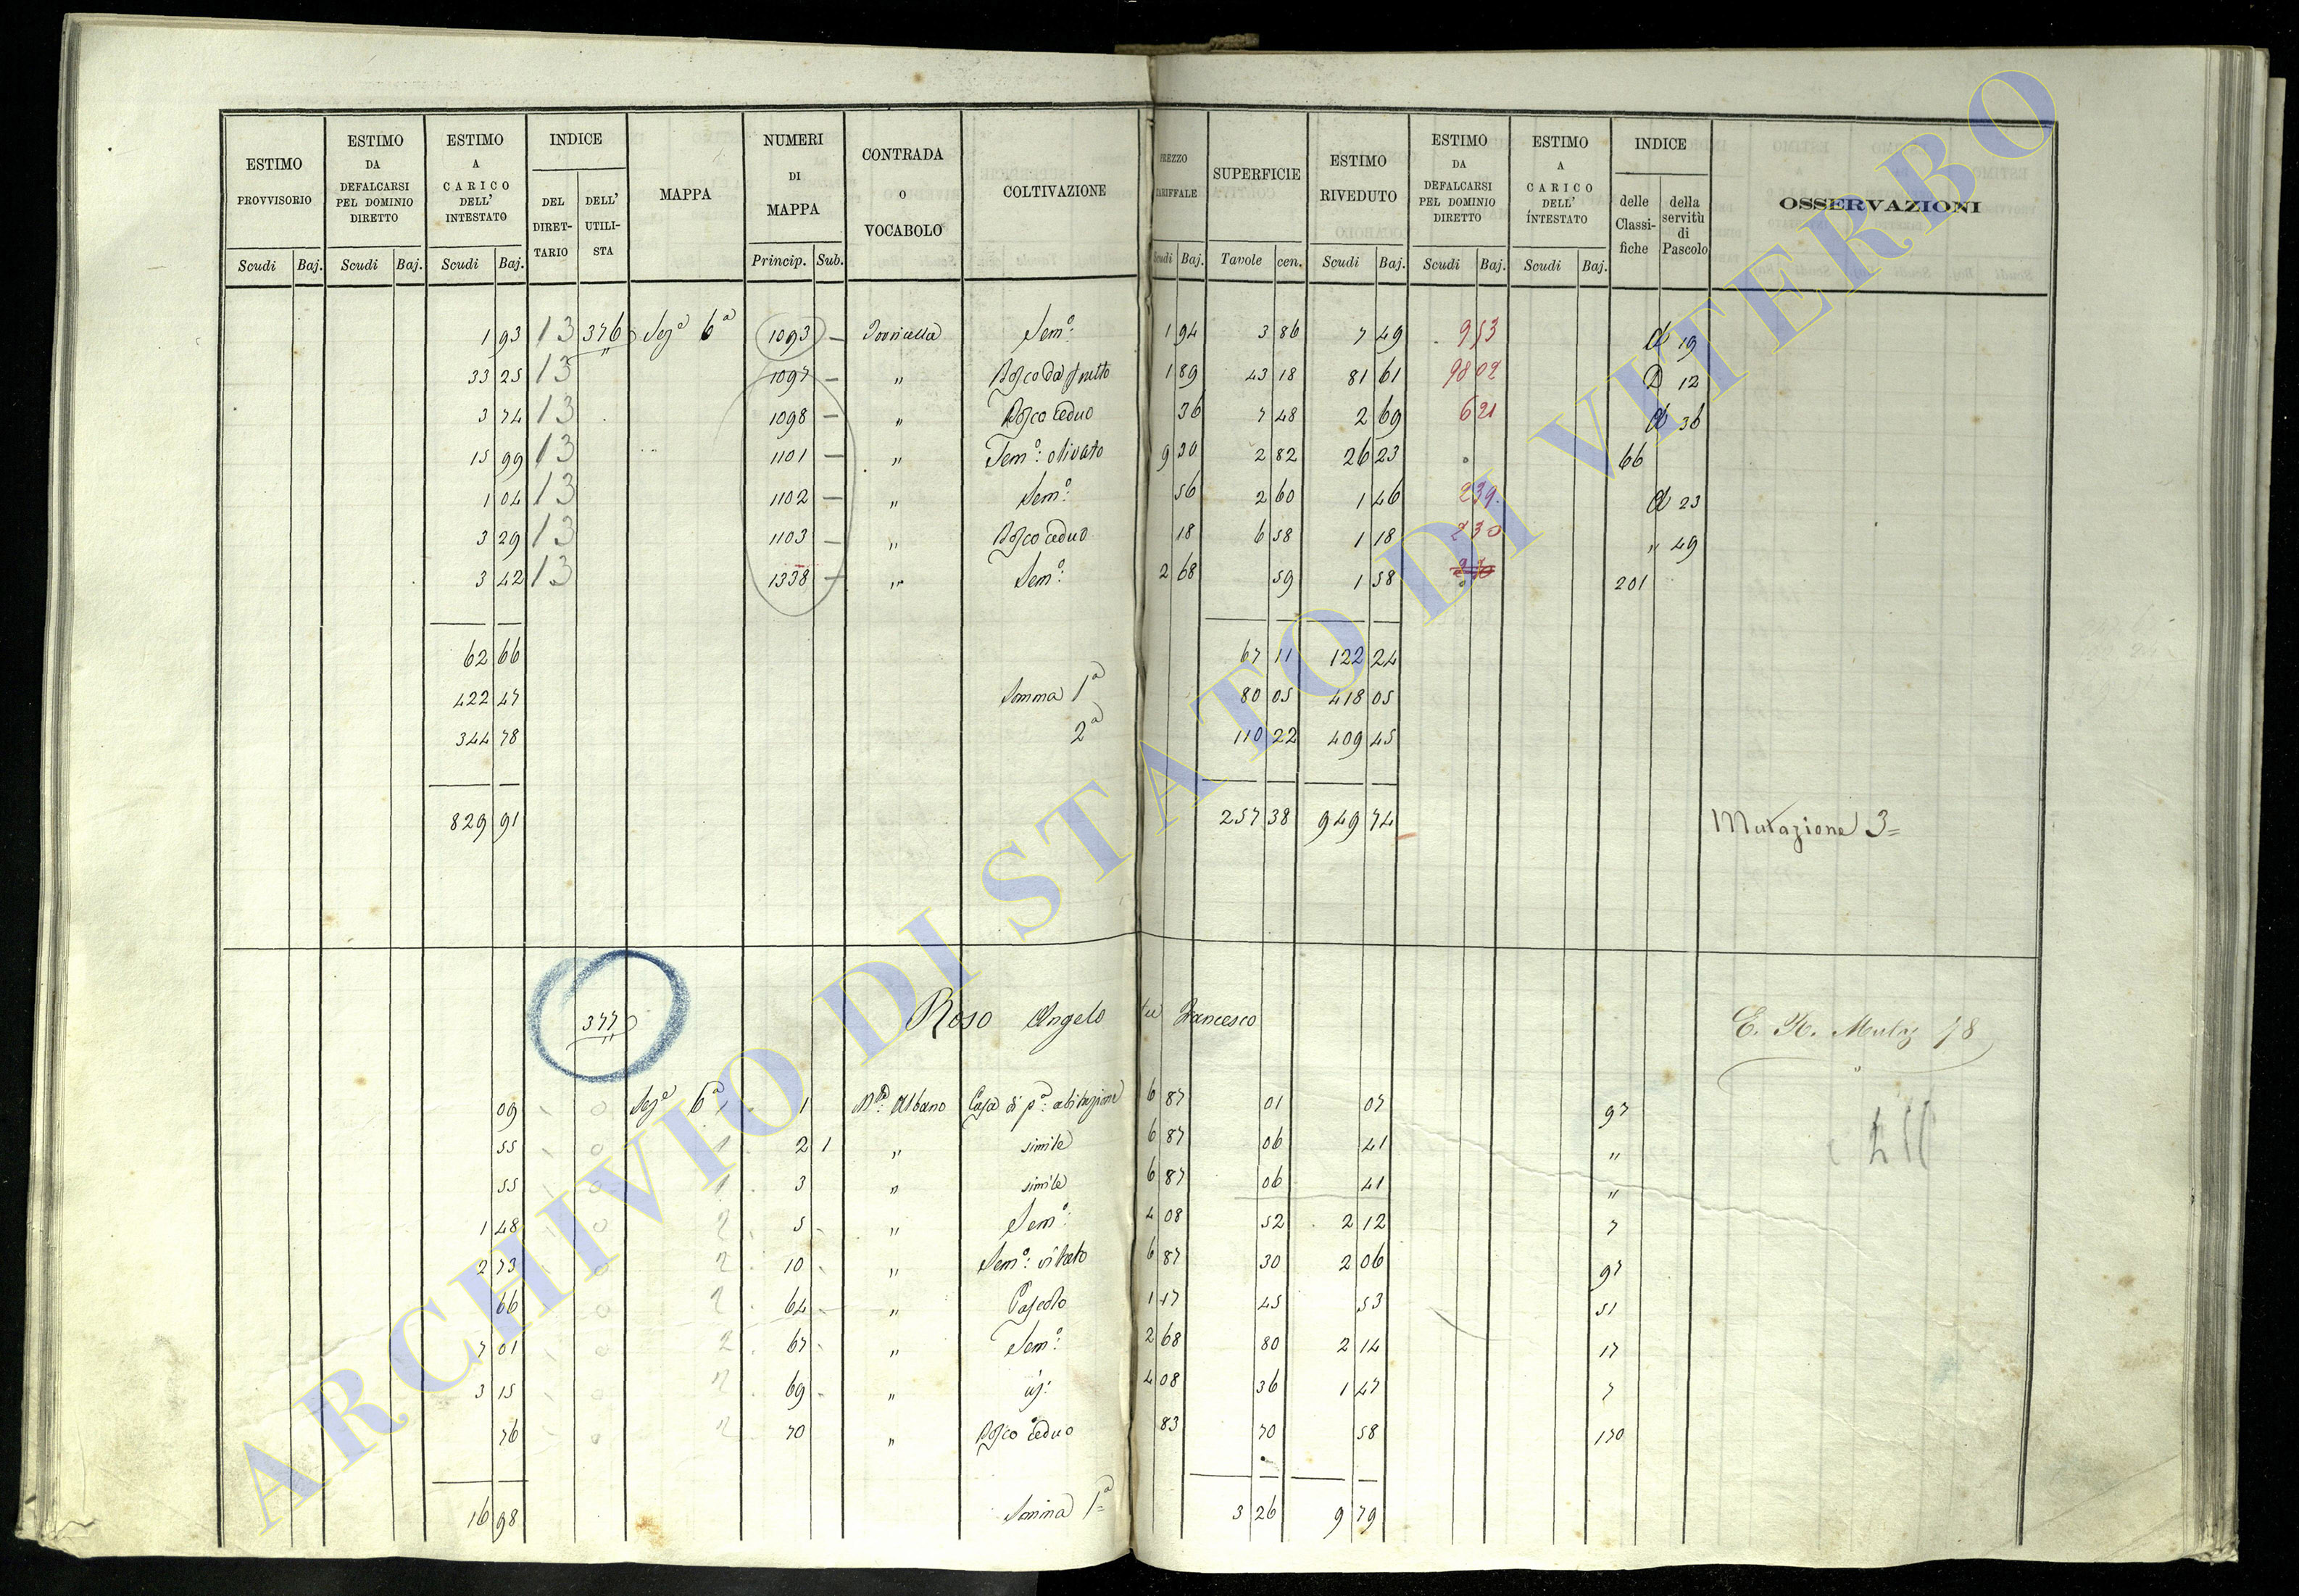 ESTIMO PROVVISORIO Scudi Baj.
ESTIMO DA DEFALCARSI PEL DOMINIO DIRETTO Scudi Baj.
ESTIMO A CARICO DELL' INTESTATO Scudi Baj.
INDICE DEL DIRET-TARIO DELL' UTILI-STA
MAPPA
NUMERI DI MAPPA Princip. Sub.
CONTRADA O VOCABOLO
COLTIVAZIONE
PREZZO TARIFFALE Scudi Baj.
SUPERFICIE Tavole cen.
ESTIMO RIVEDUTO Scudi Baj.
ESTIMO DA DEFALCARSI PEL DOMINIO DIRETTO Scudi Baj.
ESTIMO A CARICO DELL' INTESTATO Scudi Baj.
INDICE delle Classi-fiche della servitù di Pascolo
OSSERVAZIONI
1 93 13 376 Sez.a 6a 1093 — Sem.o: 1 94 3 86 7 49 9 53 19
33 25 13 1097 — " Bosco da frutto 1 89 43 18 81 61 98 02 D 12
3 74 13 1098 — " Bosco ceduo 36 7 48 2 69 6 21 36
15 99 13 1101 — " Sem.o: olivato 9 30 2 82 26 23 66
1 04 13 1102 — " Sem.o: 56 2 60 1 46 2 39 23
3 29 13 1103 — " Bosco ceduo 18 6 58 1 18 2 30 " 49
3 42 13 1338 — " Sem.o: 2 68 59 1 58 201
62 66 67 11 122 24
422 47 Somma 1a 80 05 418 05
344 78 2a 110 22 409 45
829 91 257 38 949 74 Mutazione 3=
377 Roso Angelo fu Francesco E. R. Mutaz 78
09 Sez.a 6a 1 M.te Albano Casa di p.a: abitazione 6 87 01 07 97
55 1 2 1 " simile 6 87 06 41 "
55 1 3 " simile 6 87 06 41 "
1 48 2 5 " Sem.o: 4 08 52 2 12 7
2 73 2 10 " Sem.o: vitato 6 87 30 2 06 97
66 2 64 " Pascolo 1 17 45 53 51
7 01 2 67 " Sem.o: 2 68 80 2 14 17
3 15 2 69 " 4 08 36 1 47 7
76 2 70 " Bosco ceduo 83 70 58 170
16 98 Somma 1a 3 26 9 79
ARCHIVIO DI STATO DI VITERBO